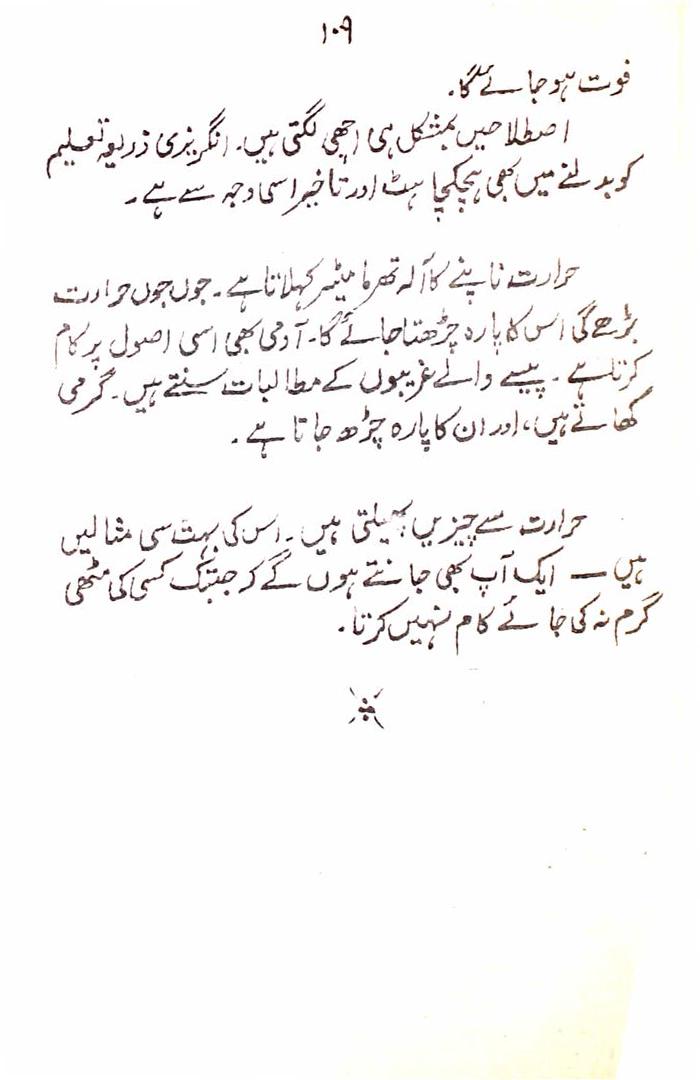 ۱۰۹
فوت ہو جائے گا۔
اصطلاحیں بمشکل ہی اچھی لگتی ہیں۔ انگریزی ذریعہ تعلیم
کو بدلنے میں بھی ہچکچاہٹ اور تاخیر اسی وجہ سے ہے۔
حرارت ناپنے کا آلہ تھرمامیٹر کہلاتا ہے۔ جوں جوں حرارت
بڑھے گی اس کا پارہ چڑھتا جائے گا۔ آدمی بھی اسی اصول پر کام
کرتا ہے۔ پیسے والے غریبوں کے مطالبات سنتے ہیں۔ گرمی
کھاتے ہیں، اور ان کا پارہ چڑھ جاتا ہے۔
حرارت سے چیزیں پھیلتی ہیں۔ اس کی بہت سی مثالیں
ہیں — ایک آپ بھی جانتے ہوں گے کہ جبتک کسی کی مٹھی
گرم نہ کی جائے کام نہیں کرتا۔